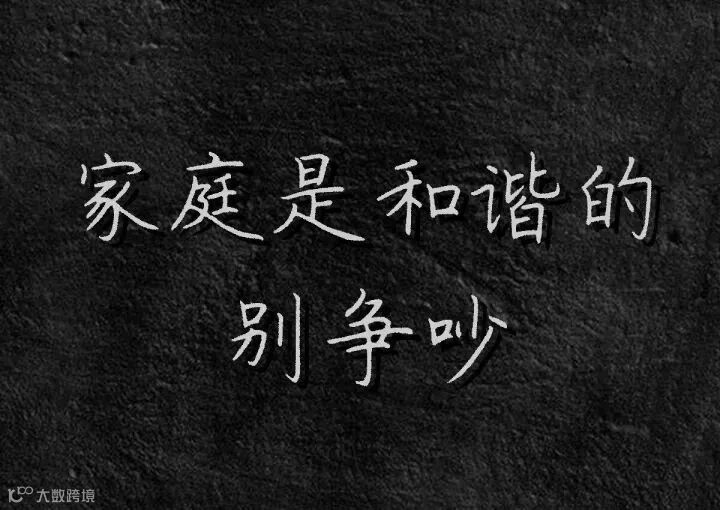 家庭是和谐的
别争吵
大数跨境